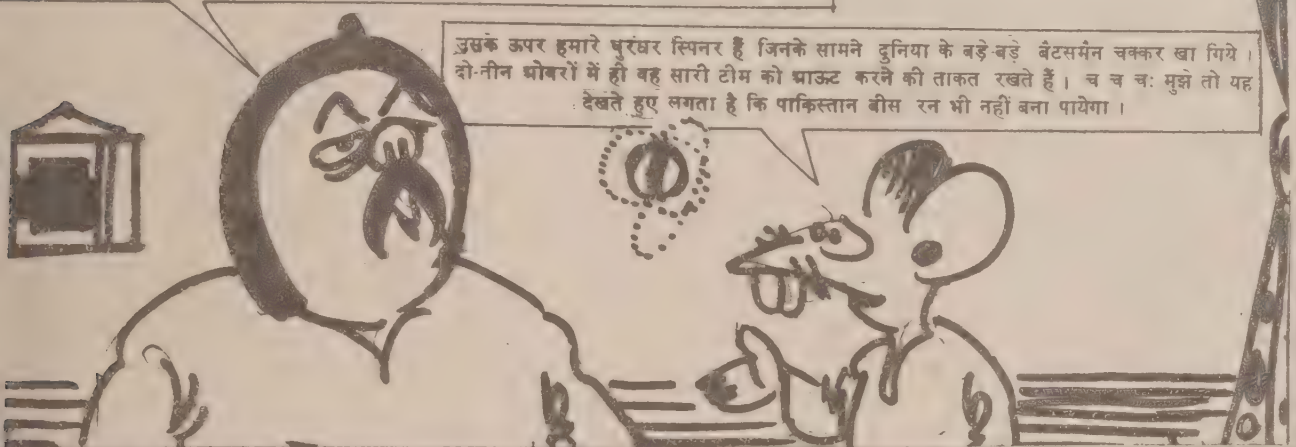 उसके ऊपर हमारे धुरंधर स्पिनर हैं जिनके सामने दुनिया के बड़े-बड़े बैटसमैन चक्कर खा गिये ।
दो-तीन ओवरों में ही वह सारी टीम को आऊट करने की ताकत रखते हैं । च च चः मुझे तो यह
देखते हुए लगता है कि पाकिस्तान बीस रन भी नहीं बना पायेगा ।